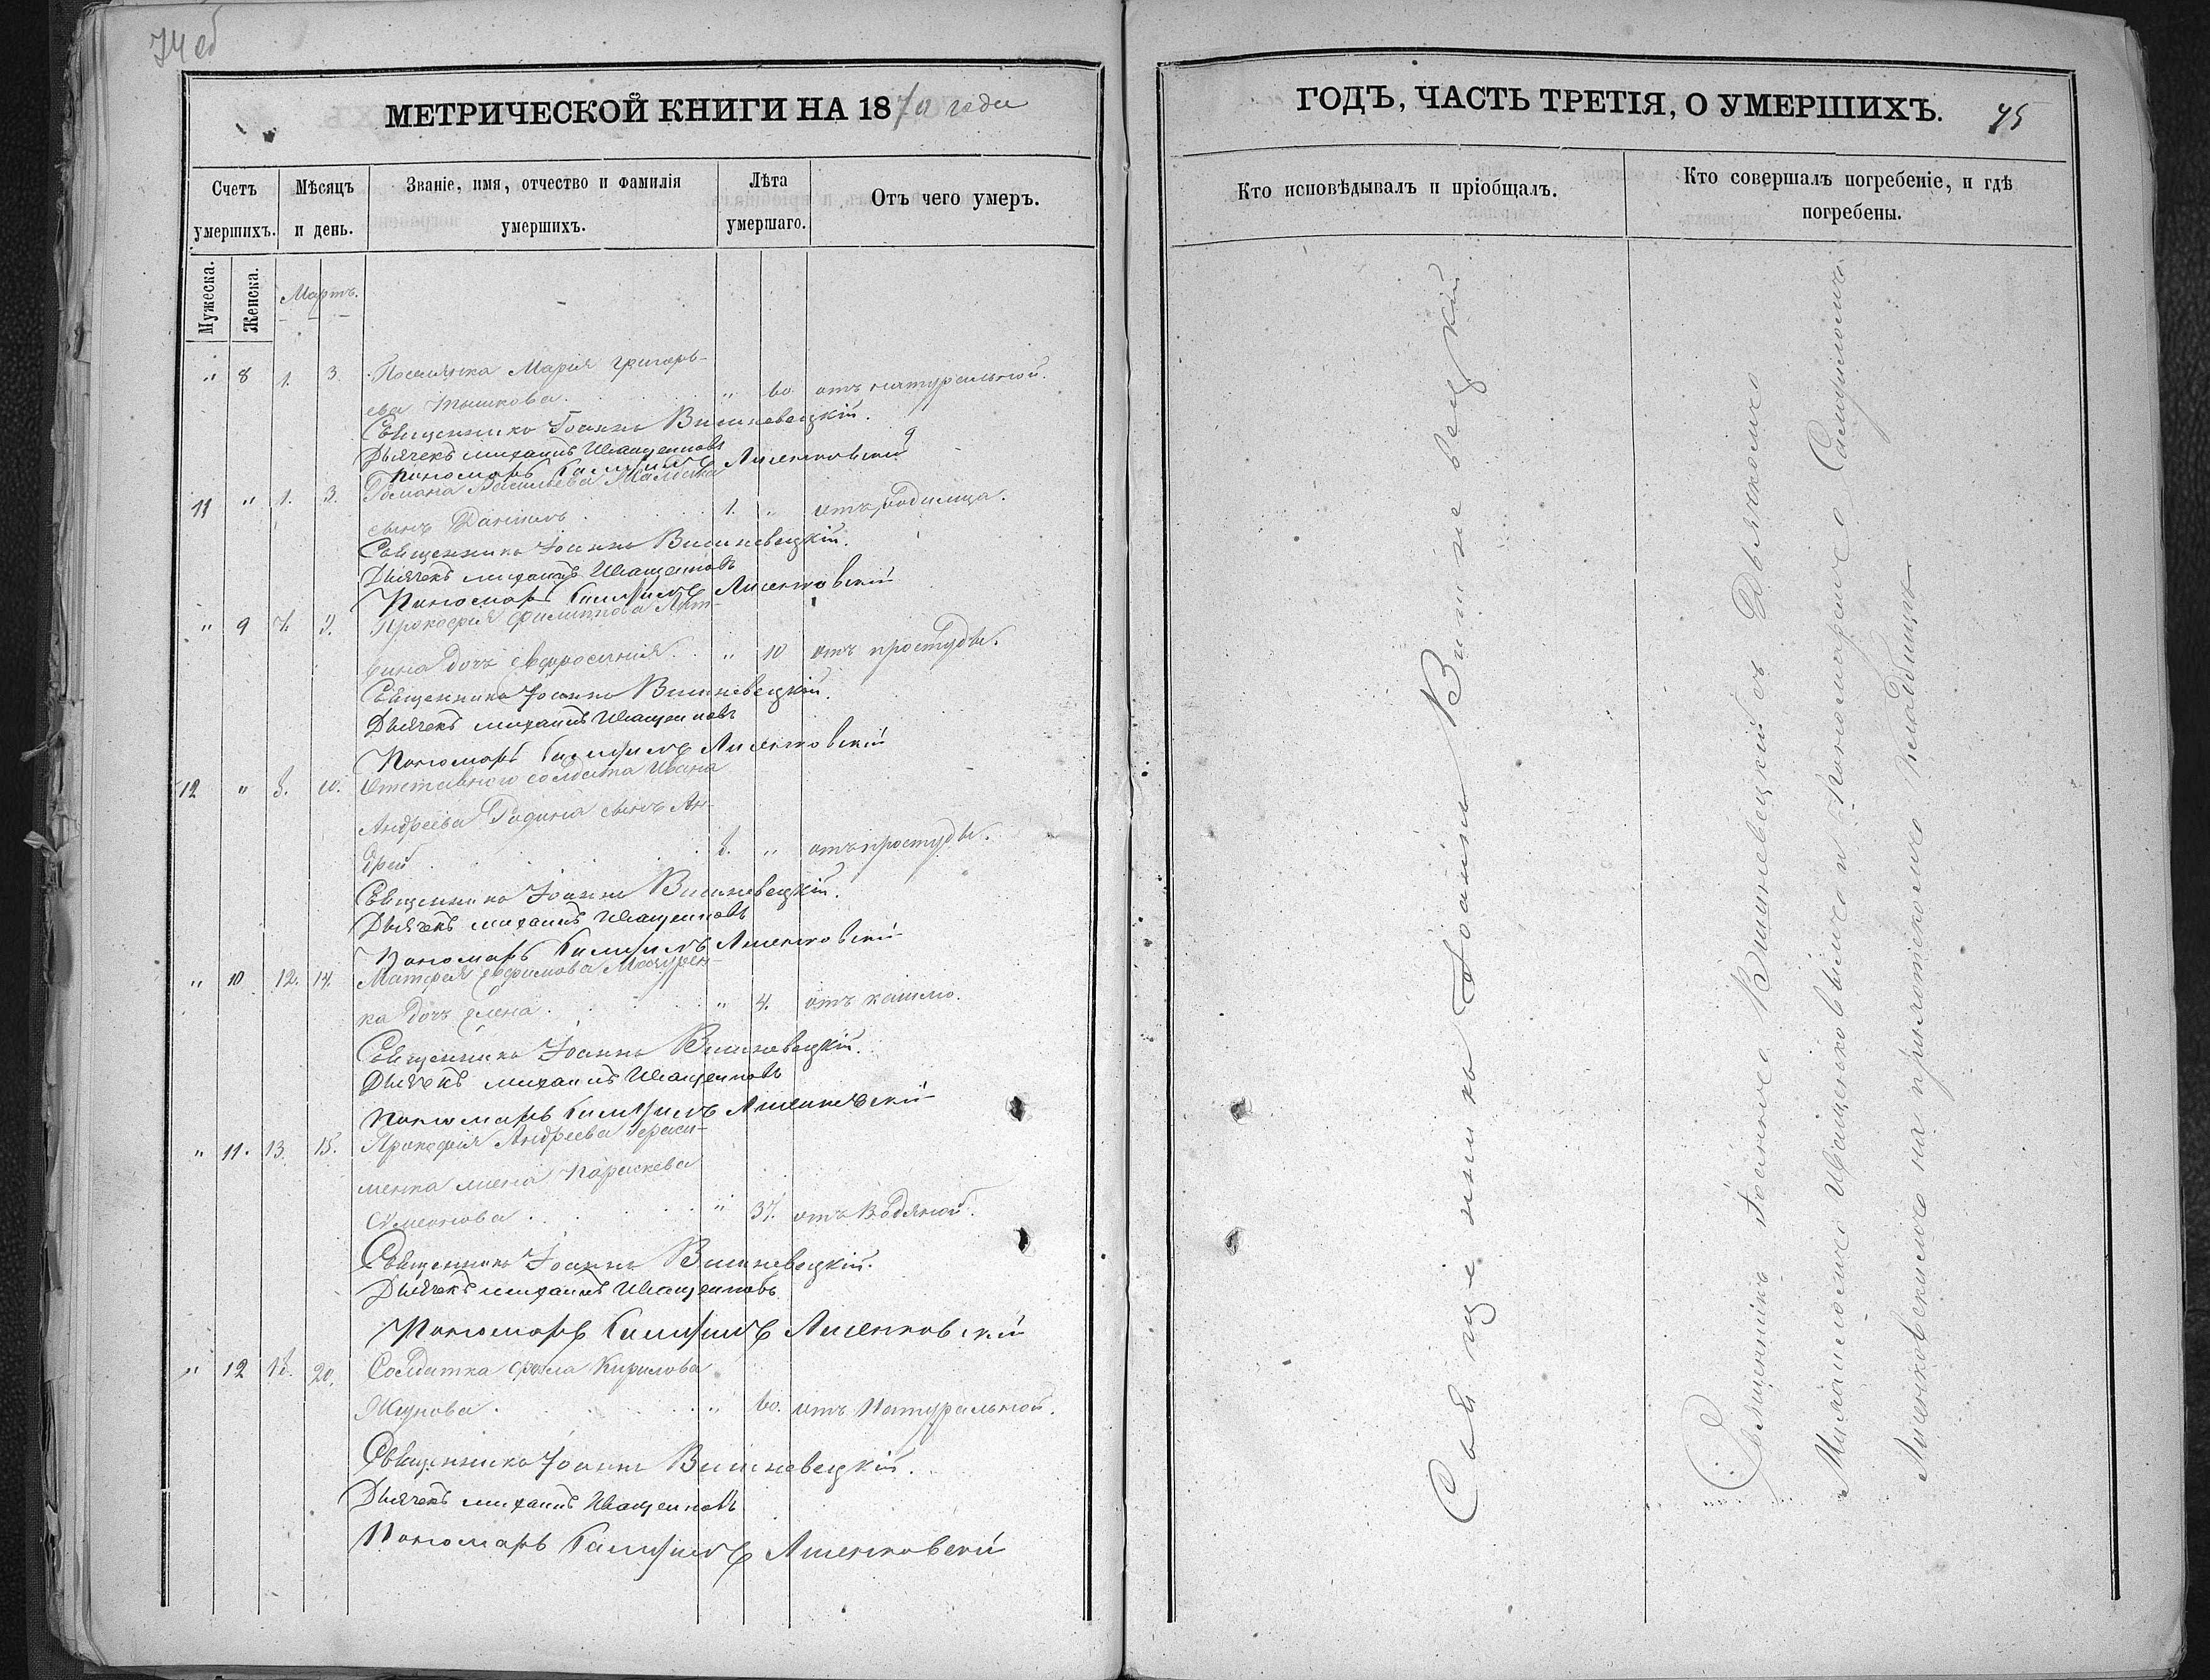 74 об
МЕТРИЧЕСКОЙ КНИГИ НА 1870 года
Счетъ умершихъ.
Мужеска.
Женска.
Мѣсяцъ и день.
Званіе, имя, отчество и фамилія умершихъ.
Лѣта умершаго.
Отъ чего умеръ.
Мартъ.
" 8 1. 3. Поселянка Марія Григорь-
ева " 60 отъ натуральной.
Священникъ Іоаннъ Вишневецкій.
Дьячекъ Михаилъ Иващенковъ
Пономарь Лисенковскій
11 " 1. 3. Романа Васильева
сынъ Даніилъ 1. " отъ родимца.
Священникъ Іоаннъ Вишневецкій.
Дьячекъ Михаилъ Иващенковъ
Пономарь Лисенковскій
" 9 Прокофія Филиппова
дочь Евфросинія " 10 отъ простуды.
Священникъ Іоаннъ Вишневецкій.
Дьячекъ Михаилъ Иващенковъ
Пономарь Лисенковскій
12 " 8. 10. Отставного солдата Ивана
Андреева сынъ Ан-
дрей " отъ простуды.
Священникъ Іоаннъ Вишневецкій.
Дьячекъ Михаилъ Иващенковъ
Пономарь Лисенковскій
" 10 12. 14. Матфея Ефимова
ка дочь Елена " 4. отъ кашлю.
Священникъ Іоаннъ Вишневецкій.
Дьячекъ Михаилъ Иващенковъ
Пономарь Лисенковскій
" 11. 13. 15. Прокофія Андреева Гераси-
менка жена Параскева
Симеонова " 37. отъ Водяной.
Священникъ Іоаннъ Вишневецкій.
Дьячекъ Михаилъ Иващенковъ
Пономарь Лисенковскій
" 12 18. 20. Солдатка Фекла Кирилова
" 60. отъ Натуральной.
Священникъ Іоаннъ Вишневецкій.
Дьячекъ Михаилъ Иващенковъ
Пономарь Лисенковскій
ГОДЪ, ЧАСТЬ ТРЕТІЯ, О УМЕРШИХЪ. 75
Кто исповѣдывалъ и пріобщалъ.
Кто совершалъ погребеніе, и гдѣ погребены.
Священникъ Іоаннъ Вишневецкій
Священникъ Іоаннъ Вишневецкій съ Дьячкомъ
Михаиломъ Иващенковымъ и Пономаремъ
Лисенковскимъ на приходскомъ кладбищѣ